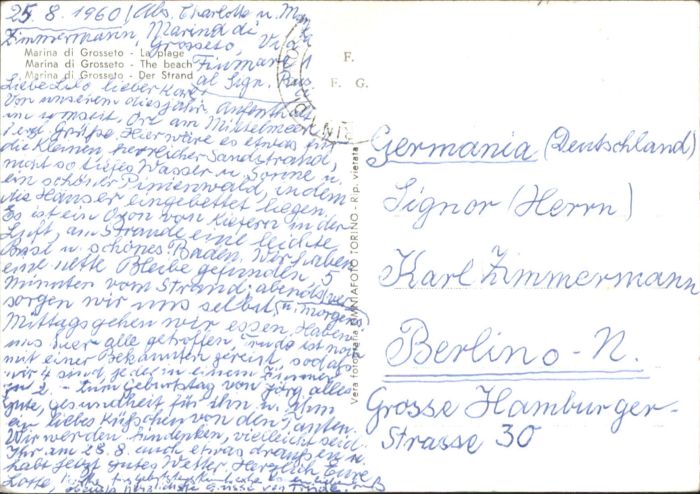 25.8.1960 / Abs. Charlotte u. M.
Zimmermann, Marina di
Grosseto, Via
Fiumara 1
al Sign.
Marina di Grosseto - La plage
Marina di Grosseto - The beach
Marina di Grosseto - Der Strand
Liebe Lilo, lieber Karl!
Von unserem diesjähr. Aufenthalt
in Grosset. Ort am Mittelmeer
herzl. Grüße. Hier wäre es etwas für
die Kleinen, herrlicher Sandstrand,
nicht so tiefes Wasser u. Sonne u.
ein schöner Pinienwald, in dem
die Häuser eingebettet liegen.
Es ist ein Ozon von Kiefern in der
Luft, am Strande eine leichte
Brise u. schönes Baden. Wir haben
eine nette Bleibe gefunden, 5
Minuten vom Strand, abends ver-
sorgen wir uns selbst, u. morgens
Mittags gehen wir essen. Haben
uns hier alle getroffen, Trude ist noch
mit einer Bekannten gereist, sodass
wir 4 sind, jeder in einem Zimmer
zu 2. - Zum Geburtstag von Jörg alles
Gute, Gesundheit für Ihn u. Ihm
ein liebes Küßchen von den Tanten.
Wir werden Ihm denken, vielleicht seid
Ihr am 28.8. auch etwas draußen u.
habt jetzt gutes Wetter. Herzlich Eure
Lotte,
F.
F. G.
Vera fotografia OMNIAFOTO TORINO - Rip. vietata
Germania (Deutschland)
Signor (Herrn)
Karl Zimmermann
Berlino - N.
Grosse Hamburger-
Strasse 30